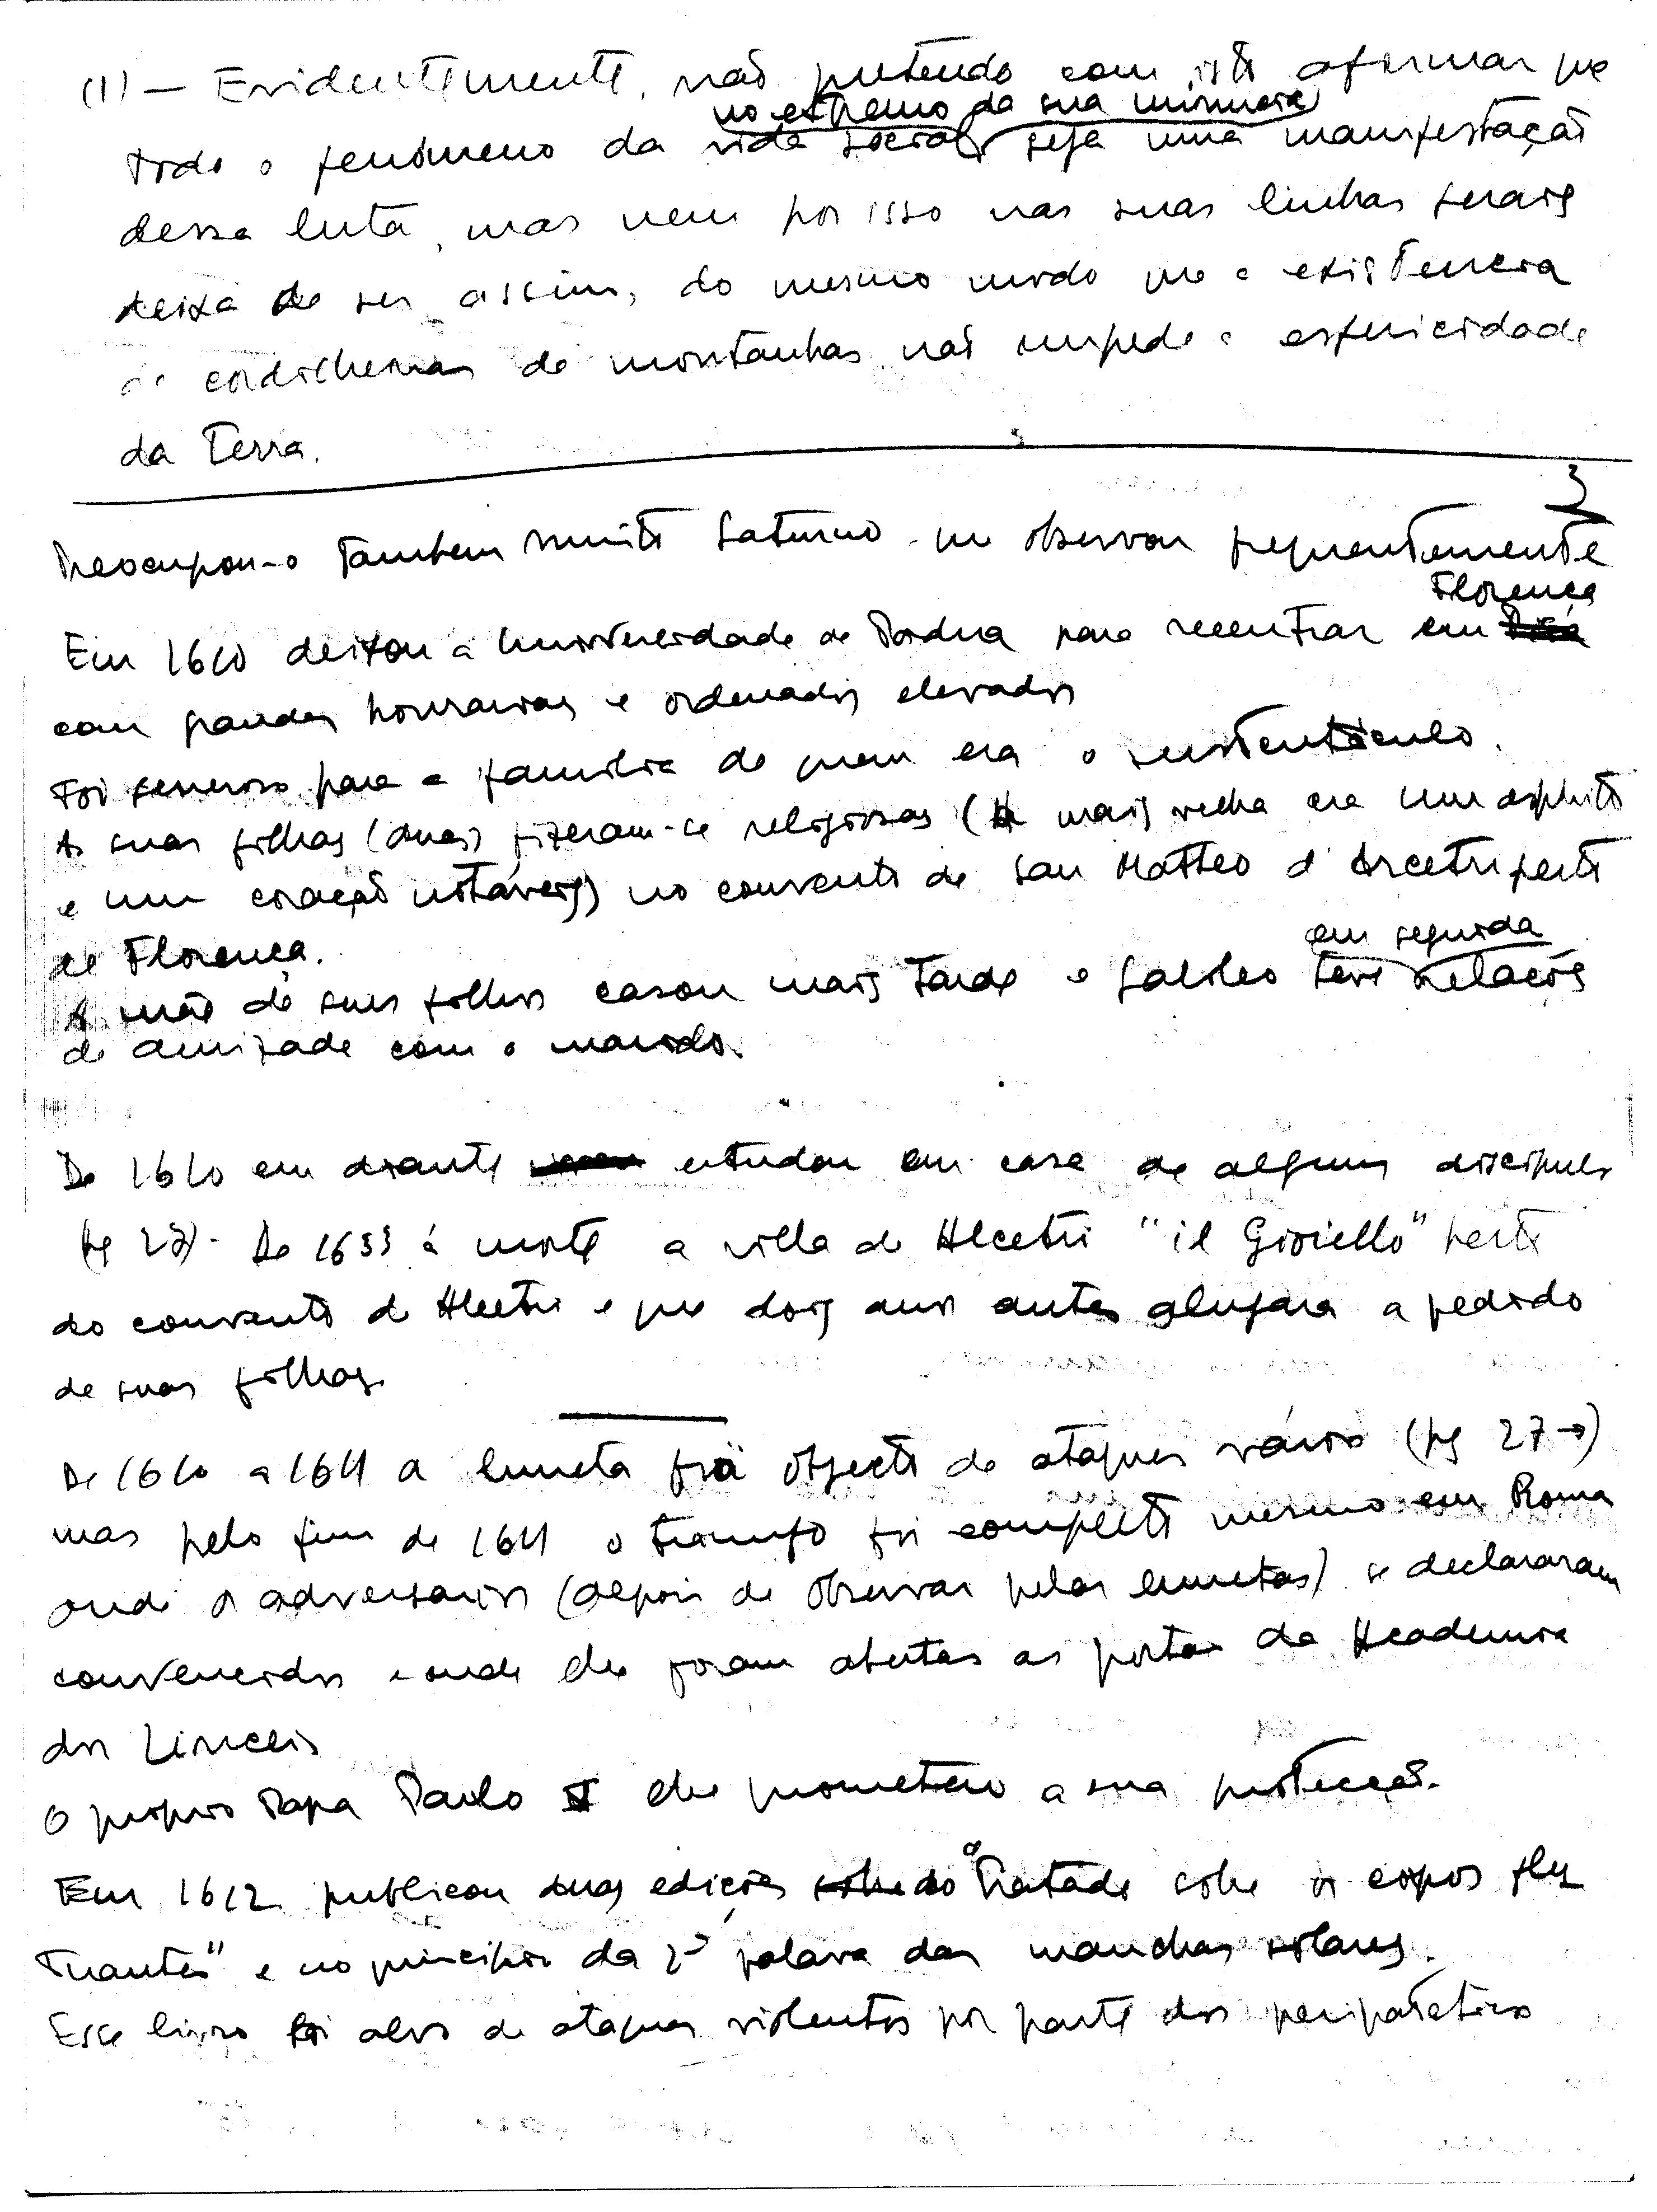 (1) — Evidentemente, não pretendo com isto afirmar que
no extremo da sua minucia
todo o fenómeno da vida social, seja uma manifestação
dessa luta, mas nem por isso nas suas linhas gerais
deixa de ser assim, do mesmo modo que a existencia
de cordilheiras de montanhas não impede a esfericidade
da Terra.
3
Preocupou-o tambem muito Saturno que observou frequentemente
Florença
Em 1610 deixou a Universidade de Padua para reentrar em Pisa
com grandes honrarias e ordenados elevados
Foi generoso para a familia de quem era o sustentáculo.
As suas filhas (duas) fizeram-se religiosas (A mais velha era um espirito
e um coração notáveis) no convento de San Matteo d'Arcetri perto
de Florença.
em seguida
A mãe de seus filhos casou mais tarde e Galileo teve relações
de amizade com o marido.
De 1610 em diante estudou em casa de alguns discipulos
(pg 27)- De 1633 á morte a villa de Alcetri "il Gioiello" perto
do convento de Alcetri e que dois anos antes alugara a pedido
de suas filhas.
De 1610 a 1611 a luneta foi objecto de ataques vários (pg 27→)
mas pelo fim de 1611 o triunfo foi completo mesmo em Roma
onde os adversarios (depois de observar pelas lunetas) se declararam
convencidos e onde lhe foram abertas as portas da Academia
dos Linceis
O proprio Papa Paulo V lhe prometeu a sua protecção.
Em 1612 publicou duas edições sobre do "Tratado sobre os corpos flu
tuantes" e no principio da 2ª falava das manchas solares.
Esse livro foi alvo de ataques violentos por parte dos peripatéticos